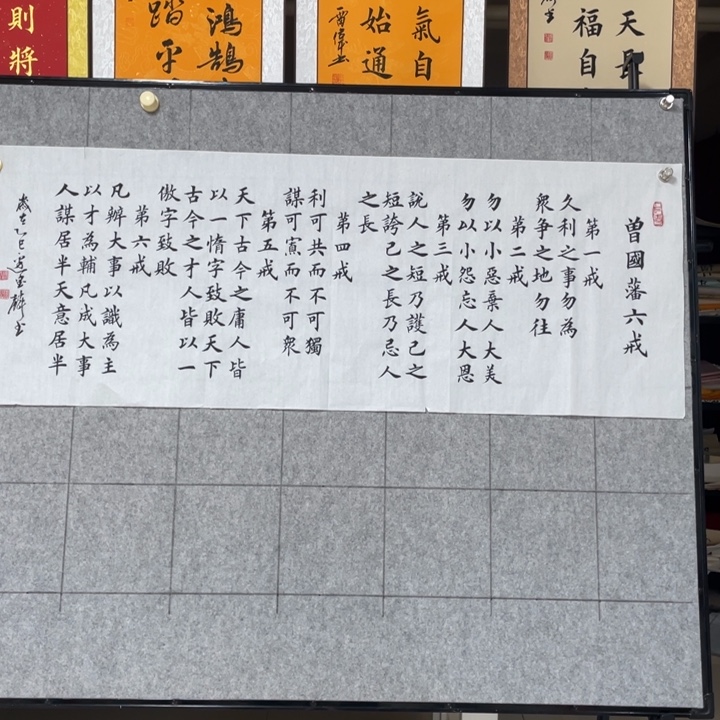 曾國藩六戒
第一戒
久利之事勿為
衆争之地勿往
第二戒
勿以小惡棄人大美
勿以小怨忘人大恩
第三戒
說人之短乃護己之
短誇己之長乃忌人
之長
第四戒
利可共而不可獨
謀可寡而不可衆
第五戒
天下古今之庸人皆
以一惰字致敗天下
古今之才人皆以一
傲字致敗
第六戒
凡辦大事以識為主
以才為輔凡成大事
人謀居半天意居半
歲在乙巳
書
天長
福自
氣自
始通
書
鴻鵠
踏平
則將